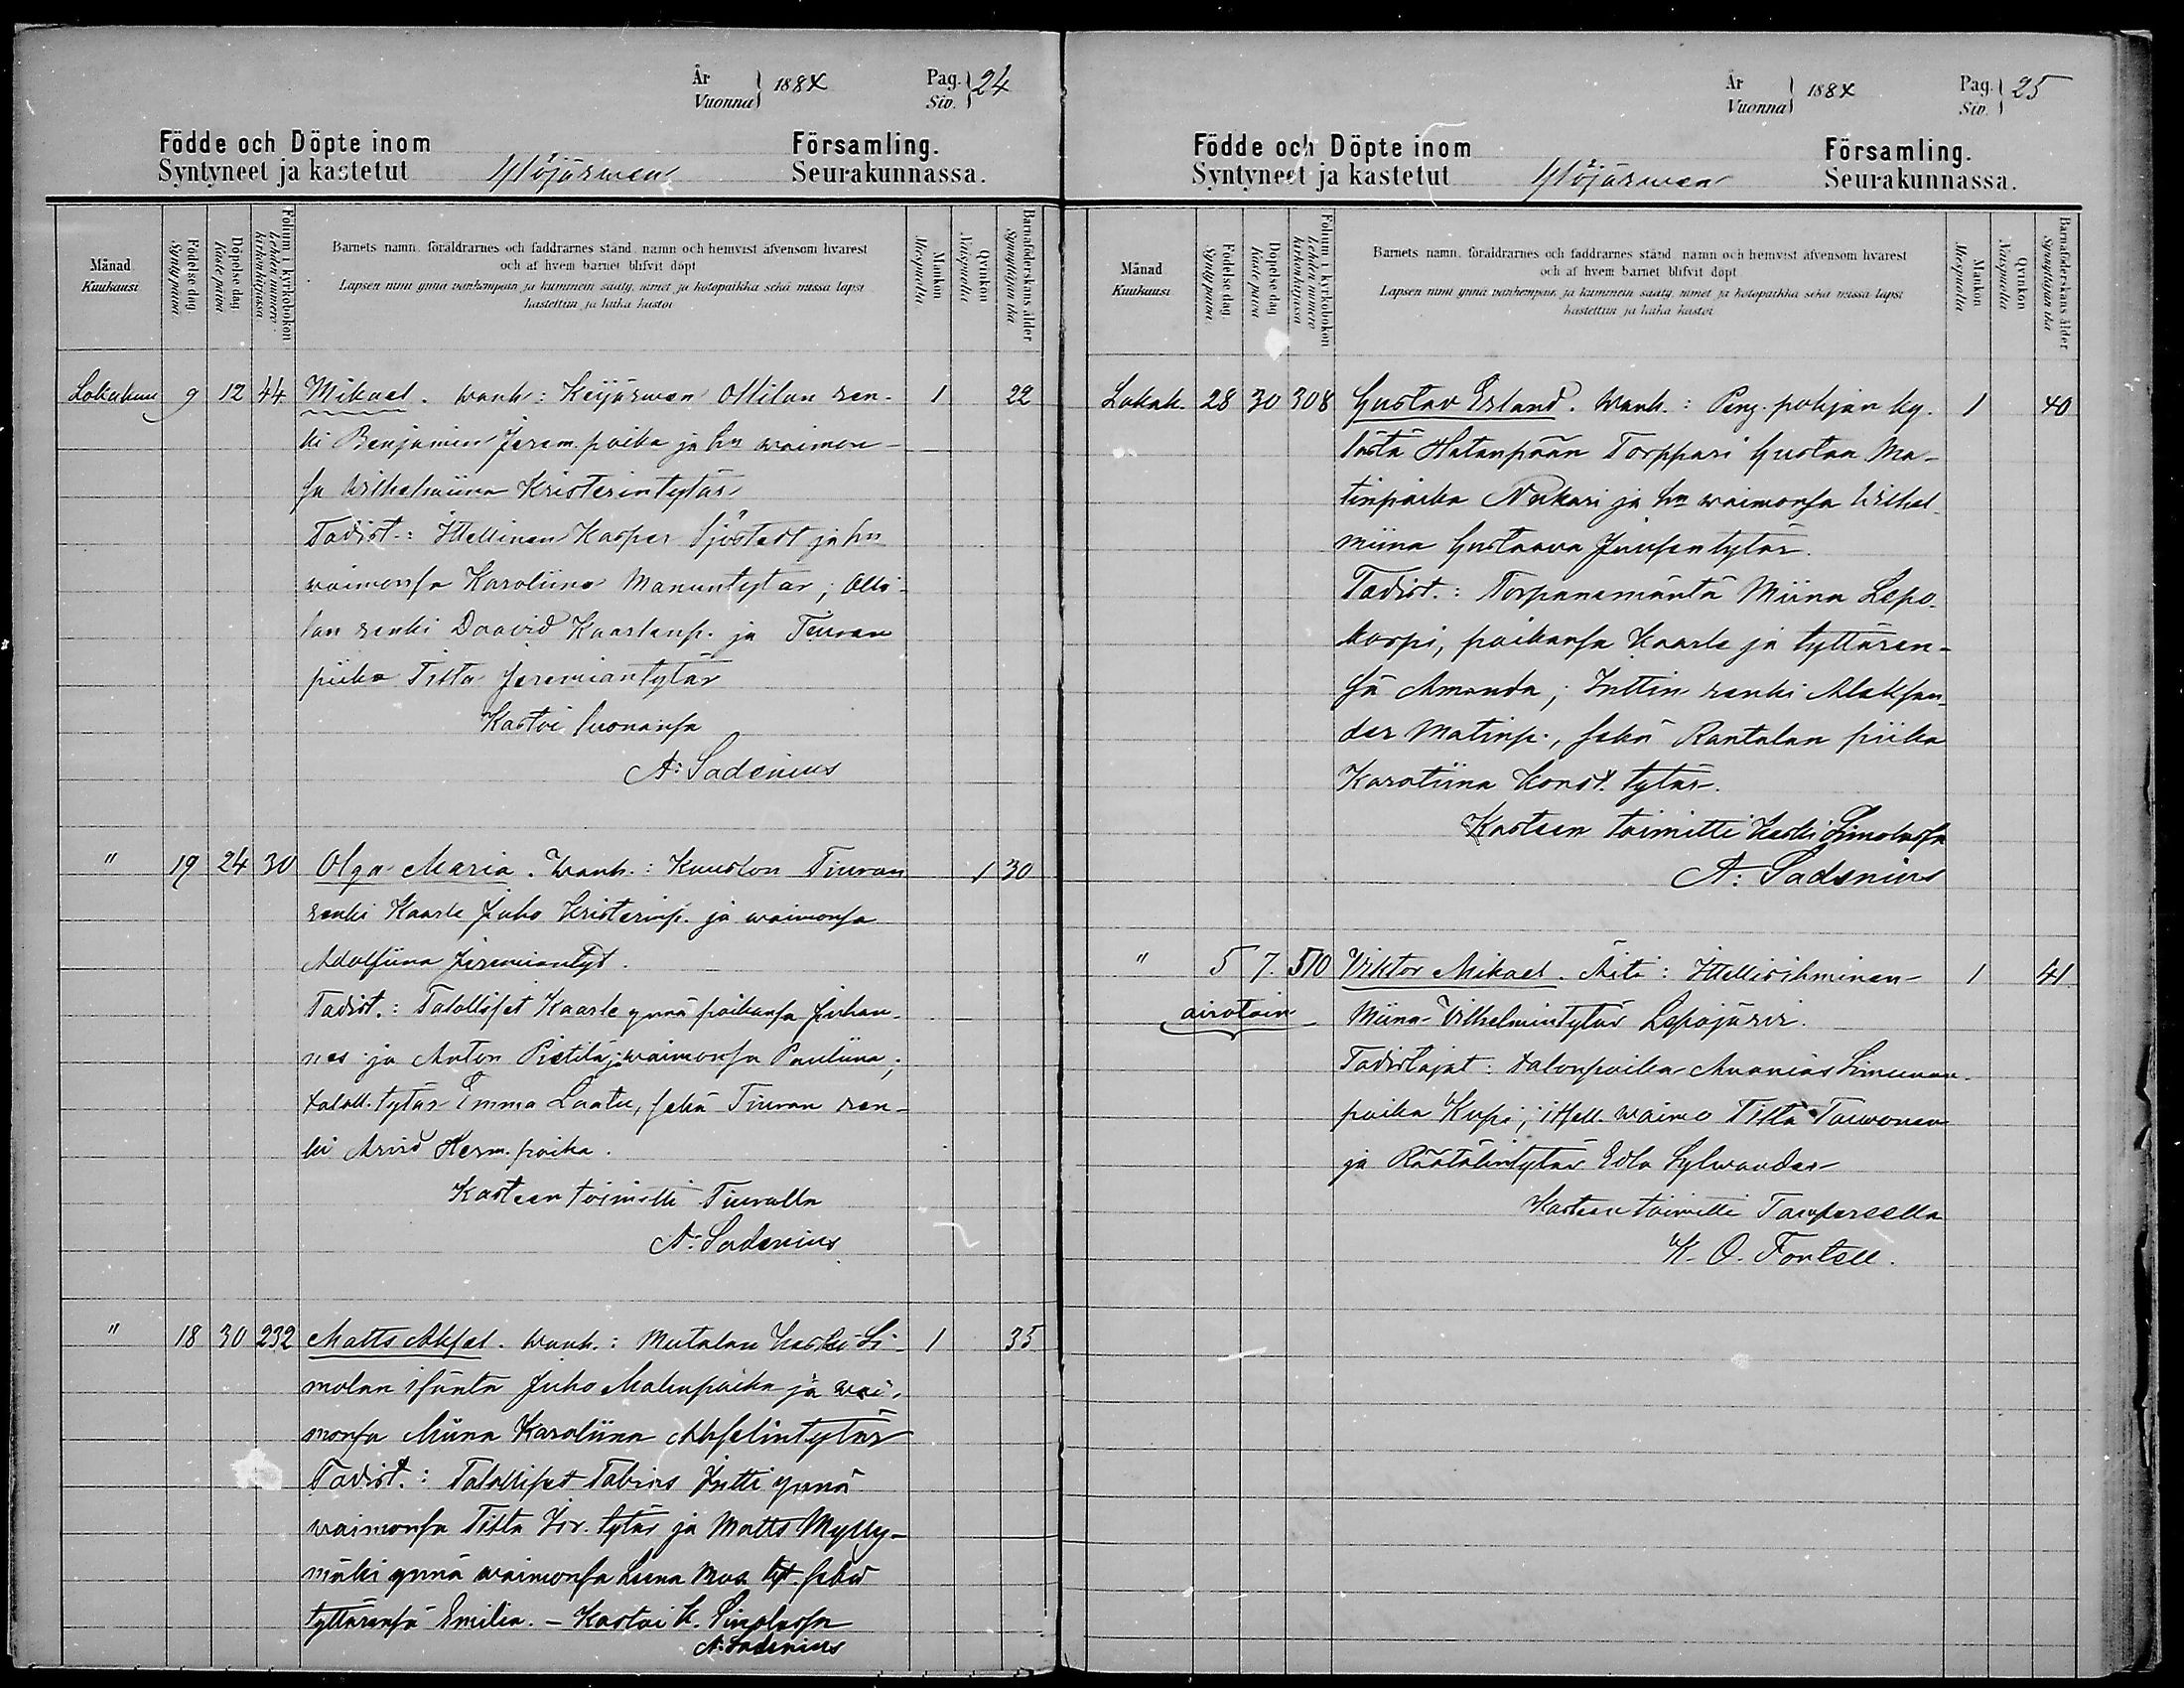 År
Vuonna } 1884
Pag.
Siv. } 24
Födde och Döpte inom Församling.
Syntyneet ja kastetut Ylöjärwen Seurakunnassa.
Månad
Kuukausi
Födelse dag
Synty päivä
Döpelse dag
Kaste päivä
Folium i kyrkoboken
Lehden numero kirkonkirjassa
Barnets namn, föräldrarnes och faddrarnes stånd, namn och hemvist äfvensom hvarest
och af hvem barnet blifvit döpt
Lapsen nimi ynnä vanhempain ja kummein sääty, nimet ja kotopaikka sekä missä lapsi
kastettiin ja kuka kastoi
Mankön
Miespuolia
Qvinkön
Naispuolia
Barnaföderskans ålder
Synnyttäjän ikä
Lokakuu 9 12 44 Mikael. Wanh: Keijärwen Ollilan ren- 1 22
ki Benjamin Jerem. poika ja hn waimon-
sa Wilhelmiina Kristerintytär
Todist.: Itellinen Kasper Sjöstedt ja hn
waimonsa Karoliina Manuntytär; Olli-
lan renki Daavid Kaarlenp. ja Tiuran
piika Tilta Jeremiantytär
Kastoi luonansa
A: Sadenius
" 19 24 30 Olga Maria. Wanh.: Kuuslon Tiuran 1 30
renki Kaarle Juho Kristerinp. ja waimonsa
Adolfiina Jeremiantyt.
Todist.: Talolliset Kaarle ynnä poikansa Juhan-
nes ja Anton Pietilä; waimonsa Pauliina;
taloll. tytär Emma Laatu, sekä Tiuran ren-
ki Arvid Herm. poika.
Kasteen toimitti Tiuralla
A: Sadenius
" 18 30 232 Matts Aksel. Wanh.: Mutalan Keski-Si- 1 35
molan isäntä Juho Matinpoika ja wai-
monsa Miina Karoliina Akselintytär
Todist.: Talolliset Tobias Jutti ynnä
waimonsa Tilta Jer. tytär ja Matts Mylly-
mäki ynnä waimonsa Leena Maa tyt. sekä
tyttärensä Emilia. – Kastoi K. Simolassa
A: Sadenius
År
Vuonna } 1884
Pag.
Siv. } 25
Födde och Döpte inom Församling.
Syntyneet ja kastetut Ylöjärwen Seurakunnassa.
Månad
Kuukausi
Födelse dag
Synty päivä
Döpelse dag
Kaste päivä
Folium i kyrkoboken
Lehden numero kirkonkirjassa
Barnets namn, föräldrarnes och faddrarnes stånd, namn och hemvist äfvensom hvarest
och af hvem barnet blifvit döpt
Lapsen nimi ynnä vanhempain ja kummein sääty, nimet ja kotopaikka sekä missä lapsi
kastettiin ja kuka kastoi
Mankön
Miespuolia
Qvinkön
Naispuolia
Barnaföderskans ålder
Synnyttäjän ikä
Lokak. 28 30 308 Gustav Erland. Wanh.: Peng. pohjan ky- 1 40
lästä Hatanpään Torppari Gustaa Ma-
tinpoika Nokari ja hn waimonsa Wilhel-
miina Gustaava Juusentytär.
Todist.: Torpanemäntä Miina Lepo-
korpi, poikansa Kaarle ja tyttären-
sä Amanda; Juttin renki Aleksan-
der Matinp., sekä Rantalan piika
Karoliina Konst. tytär.
Kasteen toimitti Keski Simolassa
A: Sadenius
" 5 7. 510 Viktor Mikael. Äiti: Itellisihminen 1 41
aviotoin Miina Vilhelmintytär Lepojärvi.
Todistajat: talonpoika Ananias Simunan-
poika Kupi; itsell. waimo Tilta Toiwonen
ja Räätälintytär Edla Sylwander
Kasteen toimitti Tampereella
K. O. Fontell.